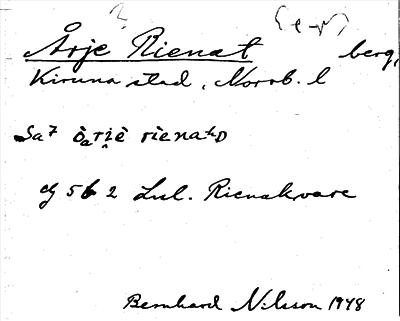 ? (e-r)
Årje Rienat berg,
Kiruna stad, Norrb. l
rienat
56 2 Lul. Rienakvare
Bernhard Nilsson 1948